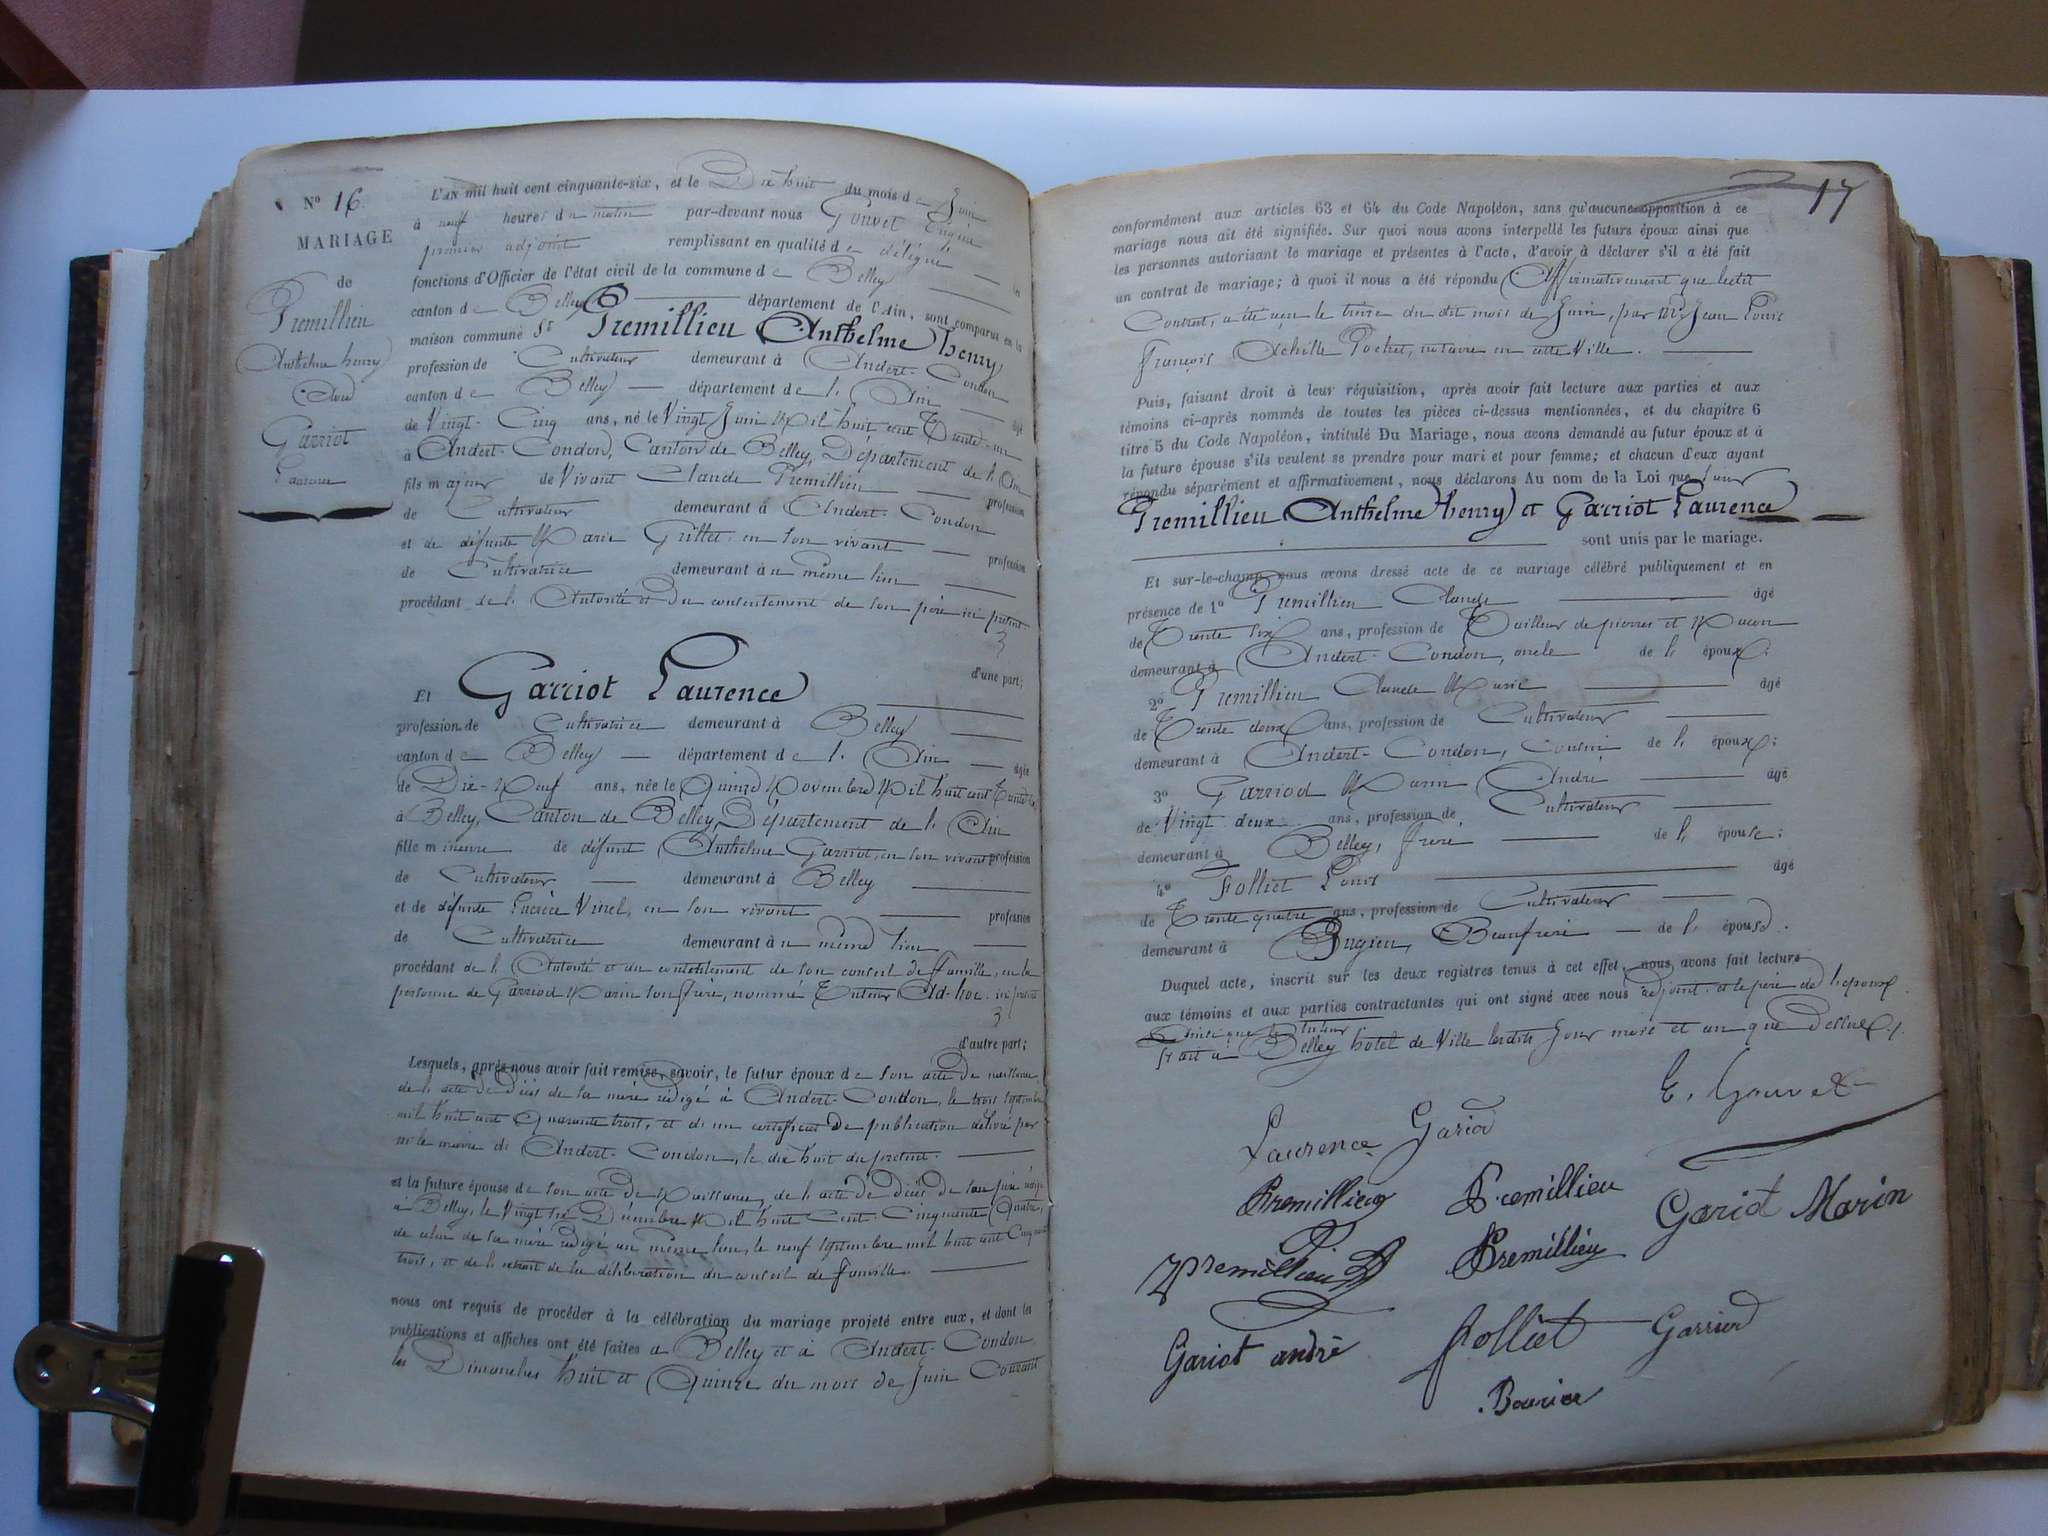 N° 16.
MARIAGE
de
Premillieu
Anthelme henry
Avec
Garriot
Laurence
L'AN mil huit cent cinquante-six, et le Dix huit du mois de Juin
à neuf heures du matin par-devant nous Gouvet Eugène
premier adjoint remplissant en qualité de délégué les
fonctions d'Officier de l'état civil de la commune de Belley
canton de Belley département de l'Ain, sont comparus en la
maison commune Sr Premillieu Anthelme henry
profession de Cultivateur demeurant à Andert-Condon
canton de Belley département de l'Ain âgé
de Vingt-Cinq ans, né le Vingt Juin Mil huit cent Trente-un
à Andert-Condon, Canton de Belley, Département de l'Ain
fils majeur de Vivant Claude Premillieu profession
de Cultivateur demeurant à Andert-Condon
et de défunte Marie Grillet, en son vivant profession
de Cultivatrice demeurant au même lieu
procédant de l'Autorité et du consentement de son père ici présent.
d'une part;
Et Garriot Laurence
profession de Cultivatrice demeurant à Belley
canton de Belley département de l'Ain âgée
de Dix-Neuf ans, née le Quinze Novembre Mil huit cent Trente
à Belley, Canton de Belley, Département de l'Ain
fille mineure de défunt Anthelme Garriot, en son vivant profession
de Cultivateur demeurant à Belley
et de défunte Vinel, en son vivant profession
de Cultivatrice demeurant au même lieu
procédant de l'Autorité et du consentement de son conseil de famille, en la
personne de Garriod Marin son frère, nommé Tuteur Ad-hoc. ici présent
d'autre part;
Lesquels, après nous avoir fait remise, savoir, le futur époux de son acte de naissance,
de l'acte de décès de sa mère rédigé à Andert-Condon, le trois septembre
mil huit cent Quarante trois, et d'un certificat de publication délivré par
mr le maire d'Andert-Condon, le dix huit du présent.
et la future épouse de son acte de Naissance, de l'acte de décès de son père rédigé
à Belley, le Vingt six Décembre Mil huit Cent Cinquante Quatre,
de celui de sa mère rédigé au même lieu, le neuf septembre mil huit cent Cinquante
trois, et de l'extrait de la délibération du conseil de famille.
nous ont requis de procéder à la célébration du mariage projeté entre eux, et dont les
publications et affiches ont été faites à Belley et à Andert-Condon
les Dimanches huit et Quinze du mois de Juin Courant
17
conformément aux articles 63 et 64 du Code Napoléon, sans qu'aucune opposition à ce
mariage nous ait été signifiée. Sur quoi nous avons interpellé les futurs époux ainsi que
les personnes autorisant le mariage et présentes à l'acte, d'avoir à déclarer s'il a été fait
un contrat de mariage; à quoi il nous a été répondu Affirmativement que ledit
Contrat, a été reçu le treize du dit mois de Juin, par Me Jean Louis
François Achille Pochet, notaire en cette Ville.
Puis, faisant droit à leur réquisition, après avoir fait lecture aux parties et aux
témoins ci-après nommés de toutes les pièces ci-dessus mentionnées, et du chapitre 6
titre 5 du Code Napoléon, intitulé Du Mariage, nous avons demandé au futur époux et à
la future épouse s'ils veulent se prendre pour mari et pour femme; et chacun d'eux ayant
répondu séparément et affirmativement, nous déclarons Au nom de la Loi que
Premillieu Anthelme henry et Garriot Laurence
sont unis par le mariage.
Et sur-le-champ nous avons dressé acte de ce mariage célébré publiquement et en
présence de 1° Premillieu Claude âgé
de Trente six ans, profession de Tailleur de pierres et Maçon
demeurant à Andert-Condon, oncle de l'époux;
2° Premillieu Claude Marie âgé
de Trente deux ans, profession de Cultivateur
demeurant à Andert-Condon, Cousin de l'époux;
3° Garriod Marin André âgé
de Vingt deux ans, profession de Cultivateur
demeurant à Belley, frère de l'épouse;
4° Folliet Louis âgé
de Trente quatre ans, profession de Cultivateur
demeurant à Bugieu, Beaufrère de l'épouse.
Duquel acte, inscrit sur les deux registres tenus à cet effet, nous avons fait lecture
aux témoins et aux parties contractantes qui ont signé avec nous adjoint et le père de l'époux
Ainsi que le tuteur
fait à Belley hotel de Ville lesdits Jour mois et an que Dessus.
E. Gouvet
Laurence Gariod
Premillieux Premillieu Gariot Marin
Premillieu Premillieu
Gariot andré Folliet Garriod
Bourier